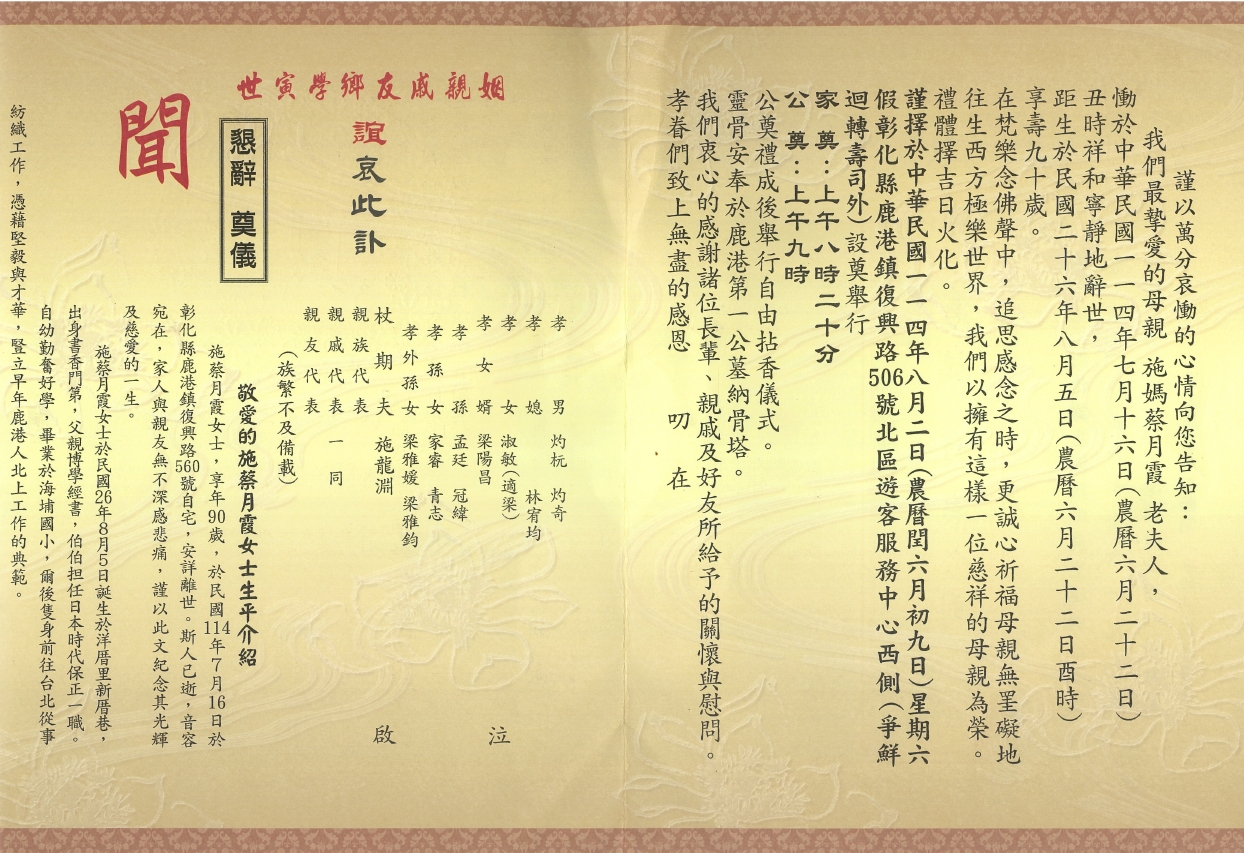 謹以萬分哀慟的心情向您告知：
我們最摯愛的母親 施媽蔡月霞 老夫人，
慟於中華民國一一四年七月十六日(農曆六月二十二日)
丑時祥和寧靜地辭世，
距生於民國二十六年八月五日(農曆六月二十二日酉時)
享壽九十歲。
在梵樂念佛聲中，追思感念之時，更誠心祈福母親無罣礙地
往生西方極樂世界，我們以擁有這樣一位慈祥的母親為榮。
禮體擇吉日火化。
謹擇於中華民國一一四年八月二日(農曆閏六月初九日)星期六
假彰化縣鹿港鎮復興路506號北區遊客服務中心西側(爭鮮
迴轉壽司外)設奠舉行
家 奠：上午八時二十分
公 奠：上午九時
公奠禮成後舉行自由拈香儀式。
靈骨安奉於鹿港第一公墓納骨塔。
我們衷心的感謝諸位長輩、親戚及好友所給予的關懷與慰問。
孝眷們致上無盡的感恩 叨 在
姻親戚友鄉學寅世
誼哀此訃
聞
懇辭 奠儀
孝男 灼杬 灼奇
孝媳 林宥均
孝女 淑敏(適梁)
孝女婿 梁陽昌
孝孫 孟廷 冠緯
孝孫女 家睿 青志
孝外孫女 梁雅媛 梁雅鈞
杖期夫 施龍淵
親族代表
親戚代表 一同
親友代表
泣
啟
(族繁不及備載)
敬愛的施蔡月霞女士生平介紹
施蔡月霞女士，享年90歲，於民國114年7月16日於
彰化縣鹿港鎮復興路560號自宅，安詳離世。斯人已逝，音容
宛在，家人與親友無不深感悲痛，謹以此文紀念其光輝
及慈愛的一生。
施蔡月霞女士於民國26年8月5日誕生於洋厝里新厝巷，
出身書香門第，父親博學經書，伯伯担任日本時代保正一職。
自幼勤奮好學，畢業於海埔國小，爾後隻身前往台北從事
紡織工作，憑藉堅毅與才華，豎立早年鹿港人北上工作的典範。